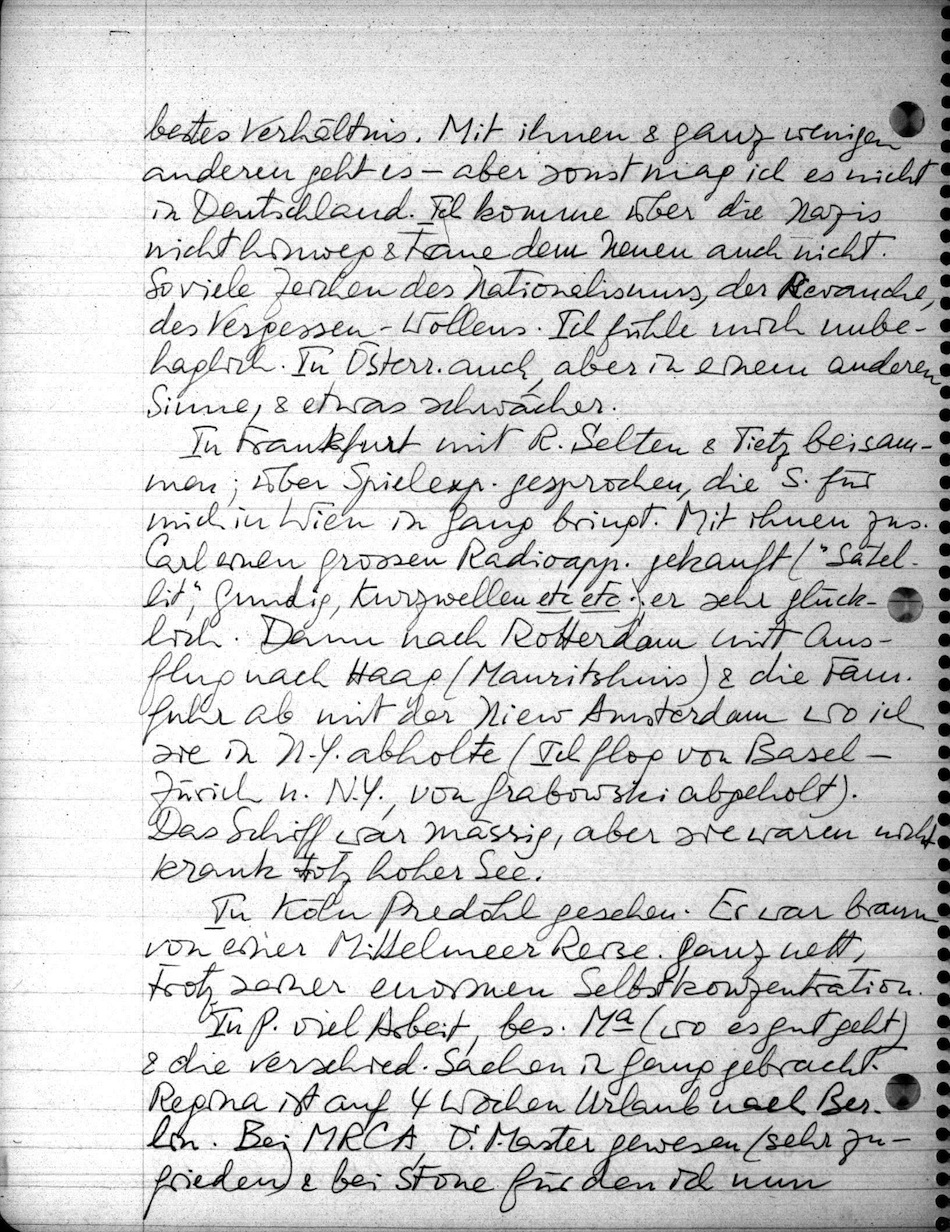 bestes Verhältnis. Mit ihnen & ganz wenigen
anderen geht es – aber sonst mag ich es nicht
in Deutschland. Ich komme über die Nazis
nicht hinweg & traue dem Neuen auch nicht.
Soviele Zeichen des Nationalismus, der Revanche,
des Vergessen-Wollens. Ich fühle mich unbe-
haglich. In Österr. auch, aber in einem anderen
Sinne, & etwas schwächer.
In Frankfurt mit R. Selten & Tietz beisam-
men; über Spielexp. gesprochen, die S. für
mich in Wien in Gang bringt. Mit ihnen zus.
Carl einen grossen Radioapp. gekauft ("Satel-
lit", Grundig, Kurzwellen etc etc.); er sehr glück-
lich. Dann nach Rotterdam mit Aus-
flug nach Haag (Mauritshuis) & die Fam.
fuhr ab mit der Niew Amsterdam wo ich
sie in N.Y. abholte (Ich flog von Basel –
Zürich n. N.Y., von Grabowski abgeholt).
Das Schiff war mässig, aber sie waren nicht
krank trotz hoher See.
In Köln Predöhl gesehen. Er war braun
von einer Mittelmeer Reise. Ganz nett,
trotz seiner enormen Selbstkonzentration.
In P. viel Arbeit, bes. Ma (wo es gut geht)
& die verschied. Sachen in Gang gebracht.
Regina ist auf 4 Wochen Urlaub nach Ber-
lin. Bei MRCA, D. Master gewesen (sehr zu-
frieden) & bei Stone für den ich nun